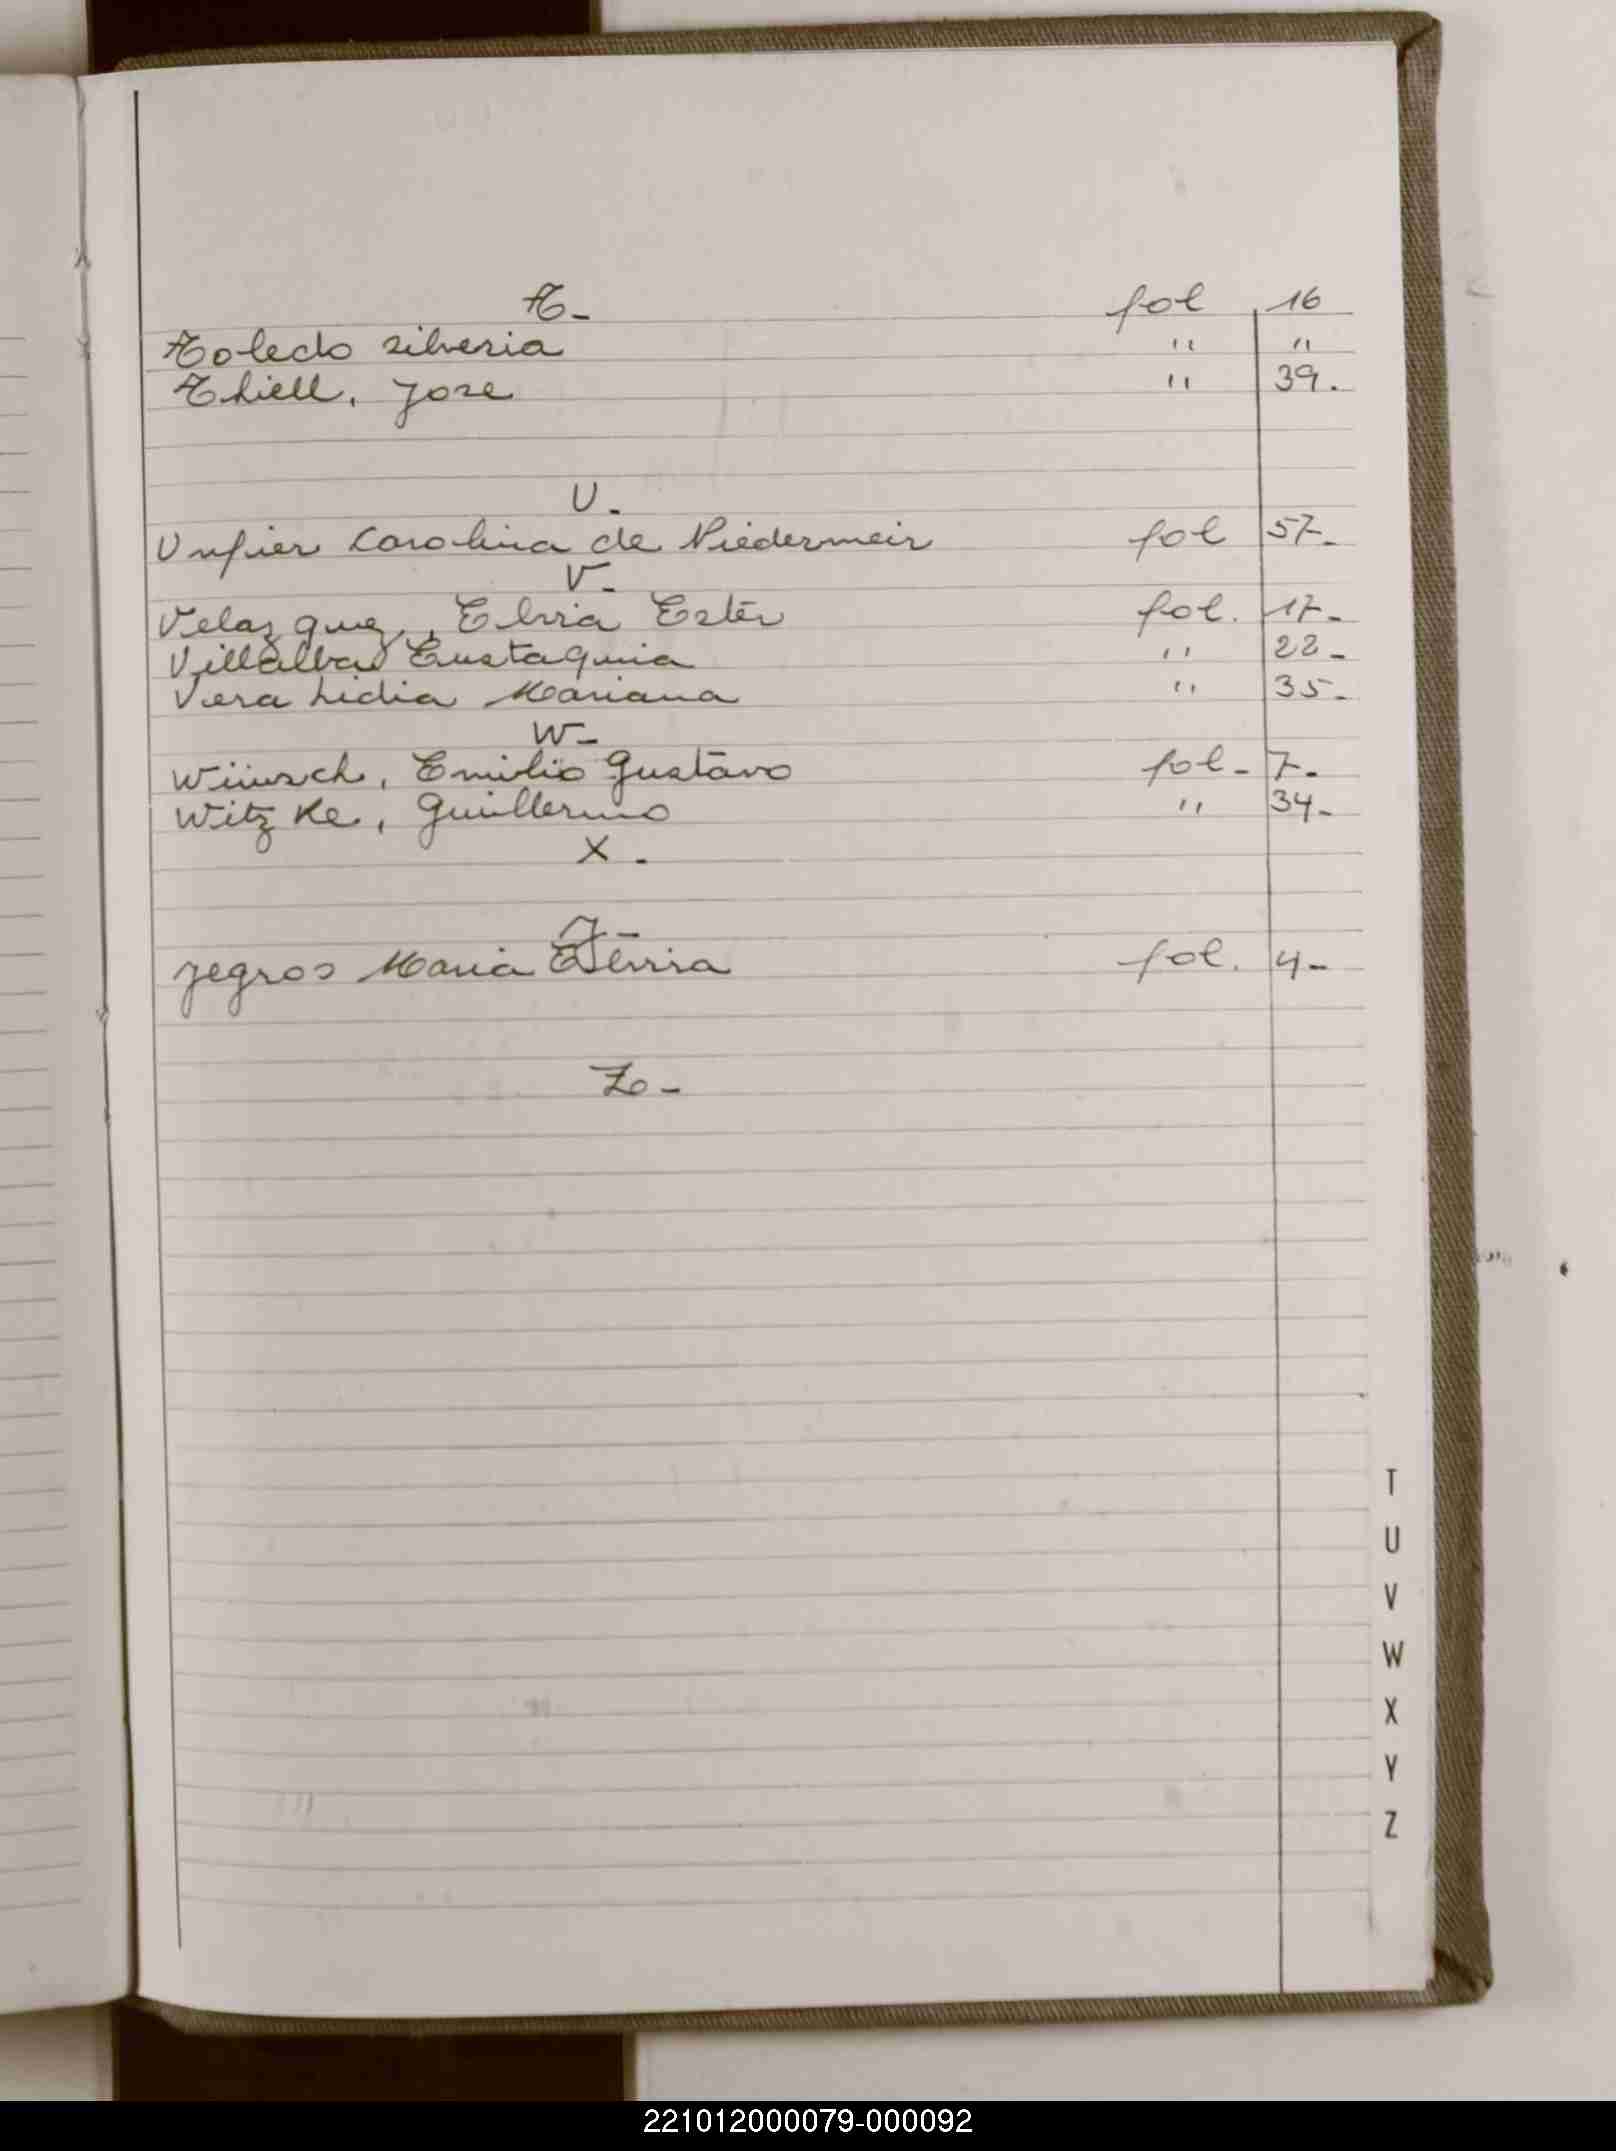 T- fol 16
Toledo Silveria " "
Thiell, Jose " 39.
U.
Unfier Carolina de Niedermeir fol 57-
V-
Velazquez, Elvia Ester fol. 17-
Villalba Eustaquia " 22-
Vera Lidia Mariana " 35-
W-
Wünsch, Emilio Gustavo fol- 7-
Witzke, Guillermo " 34-
X-
Y-
Yegros Maria fol. 4-
Z-
T
U
V
W
X
Y
Z
221012000079-000092